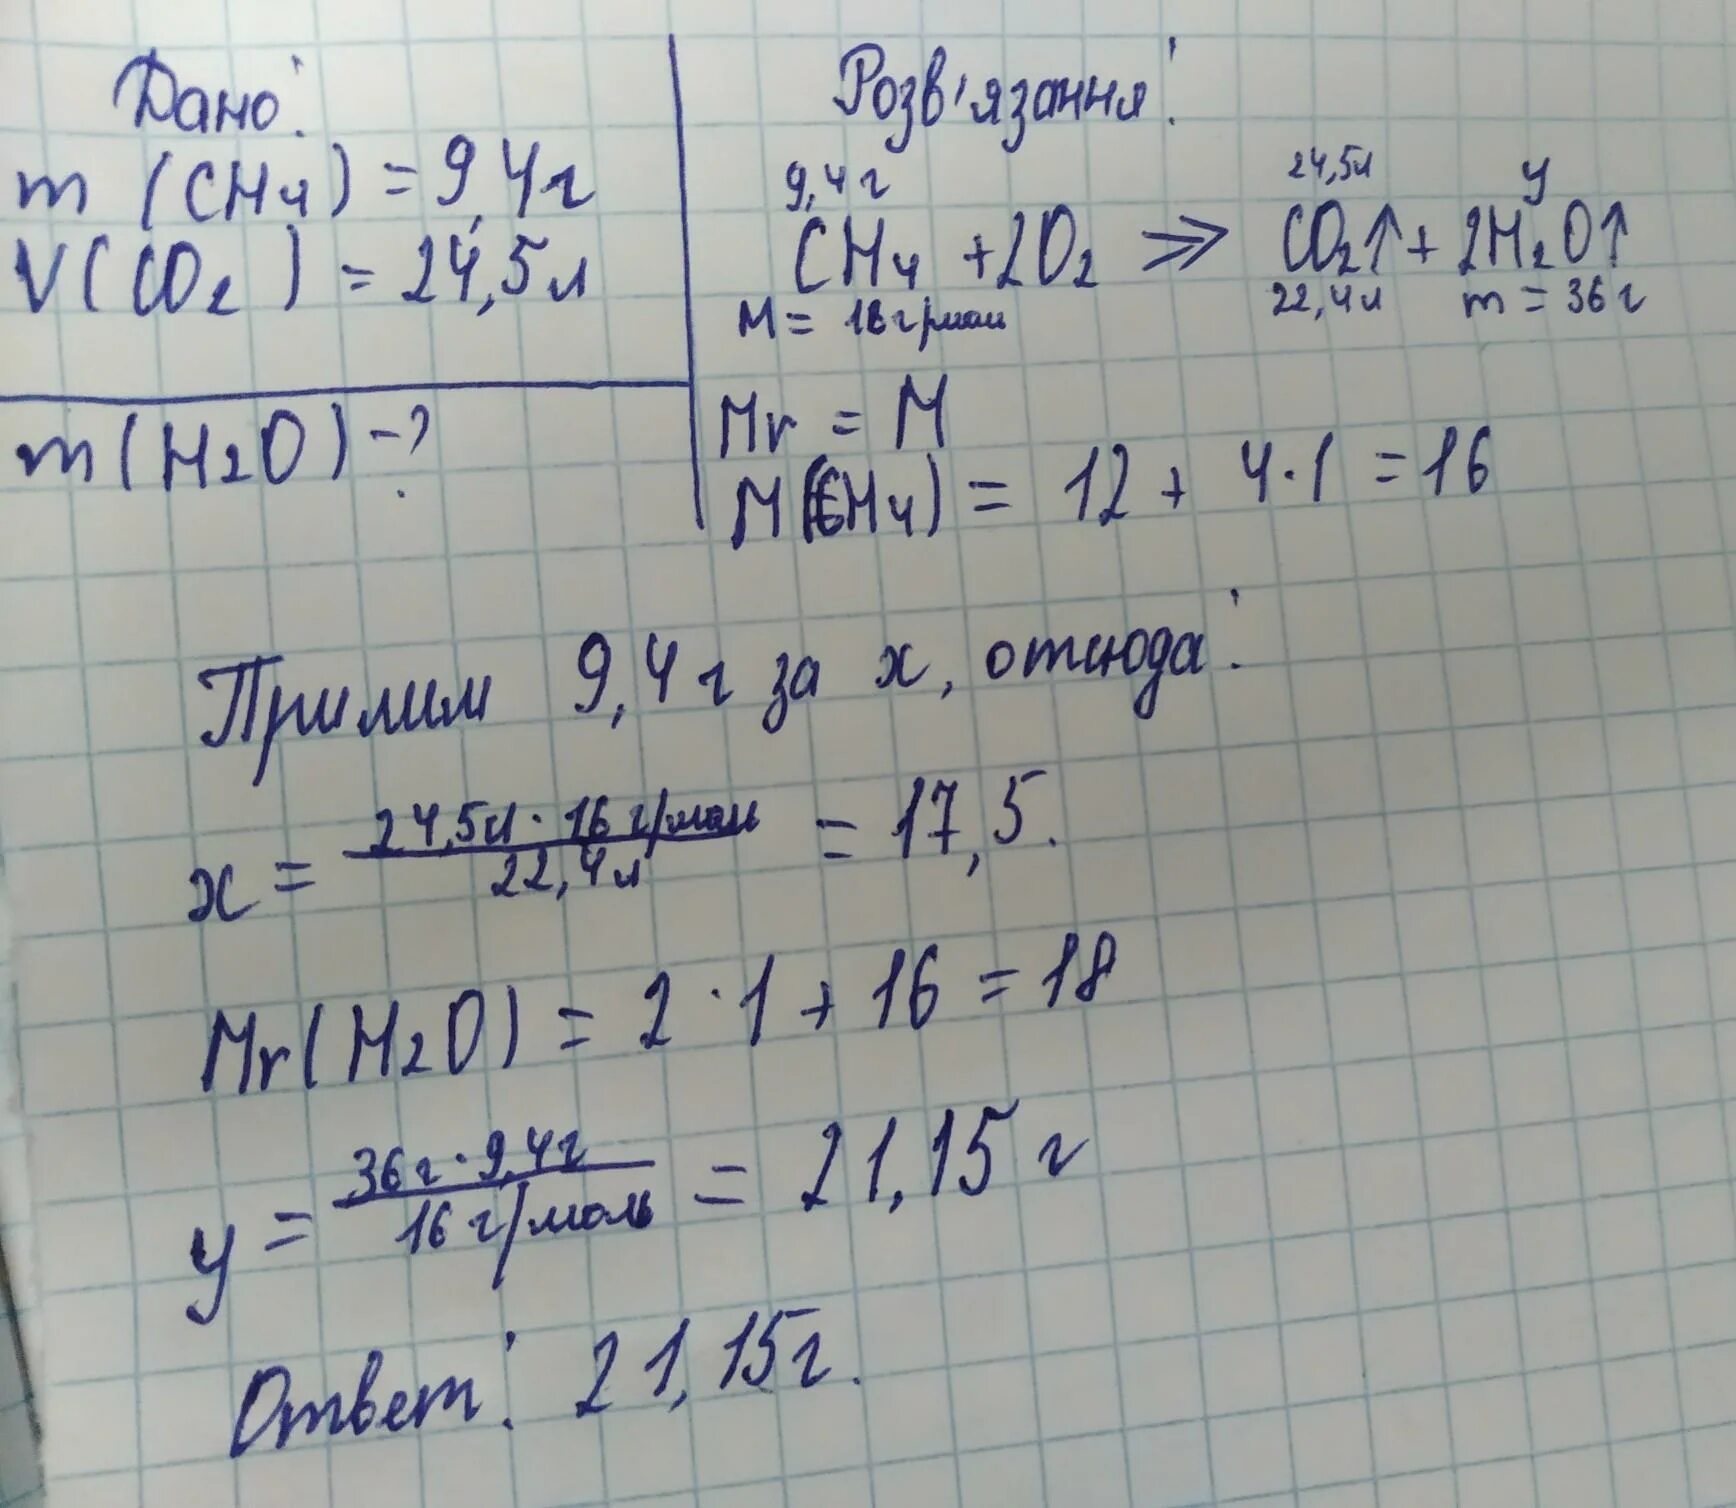 Дано:
m (CH4) = 9,4г
V(CO2) = 24,5л
m(H2O) -?
Розв'язання:
9,4г 24,5л y
CH4 + 2O2 => CO2↑ + 2H2O↑
M = 16г/моль 22,4л m = 36г
Mr = M
M(CH4) = 12 + 4·1 = 16
Прилим 9,4г за x, отсюда:
x = 24,5л · 16 г/моль / 22,4л = 17,5.
Mr(H2O) = 2·1 + 16 = 18
y = 36г · 9,4г / 16 г/моль = 21,15 г
Ответ: 21,15г.